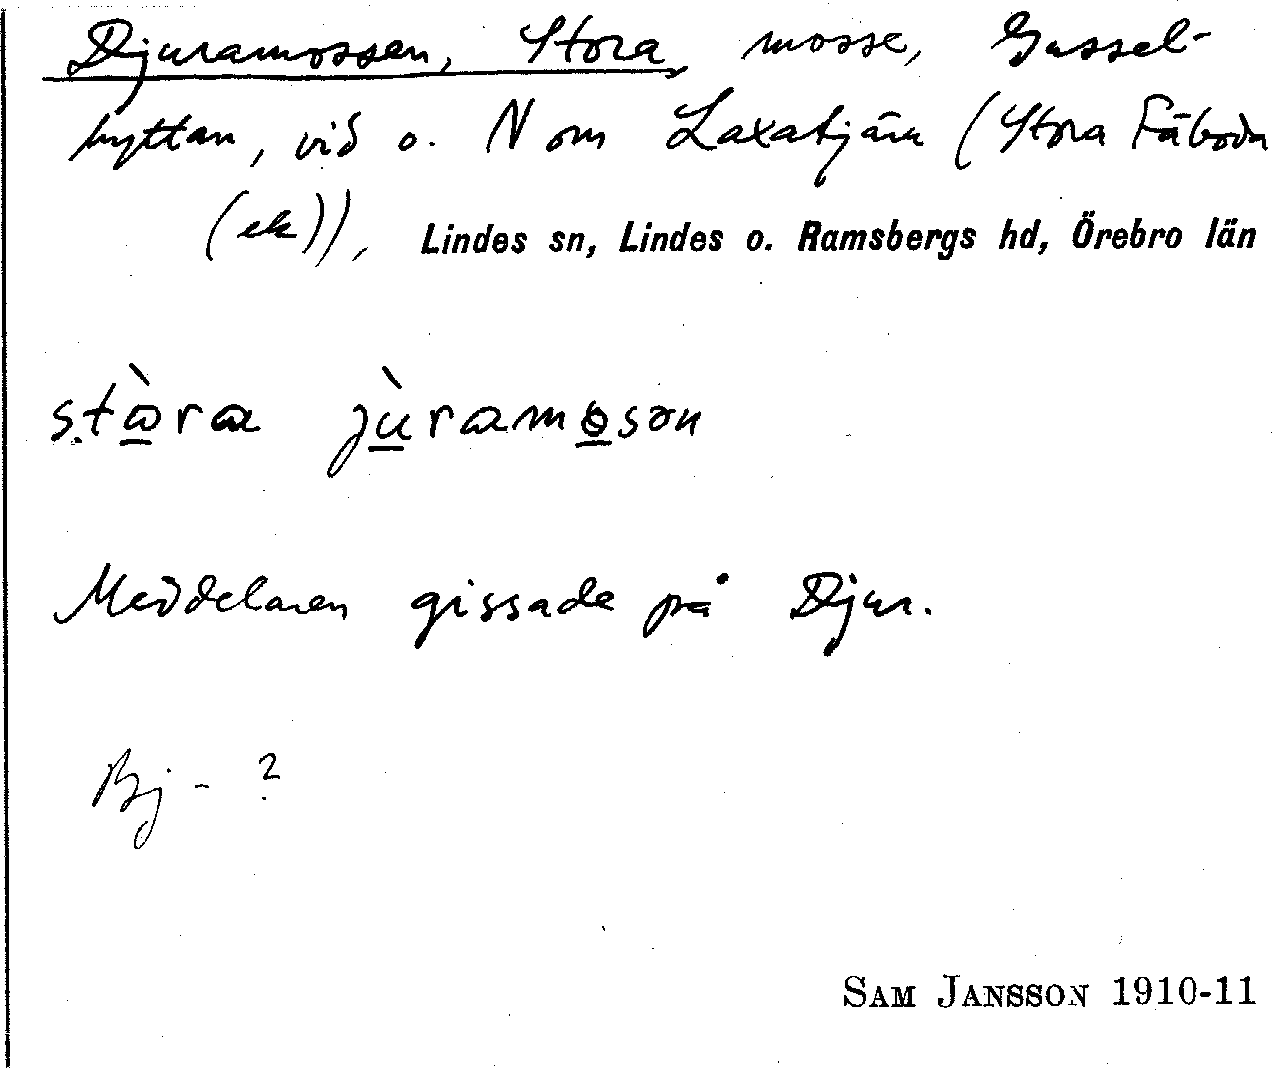 Djuramossen, Stora, mosse, Gussel-
hyttan, vid o. N om Laxatjärn (Stora Fäbodn
(ek)), Lindes sn, Lindes o. Ramsbergs hd, Örebro län
stòra jùramosən
Meddelaren gissade på Djur.
Bj- ?
SAM JANSSON 1910-11